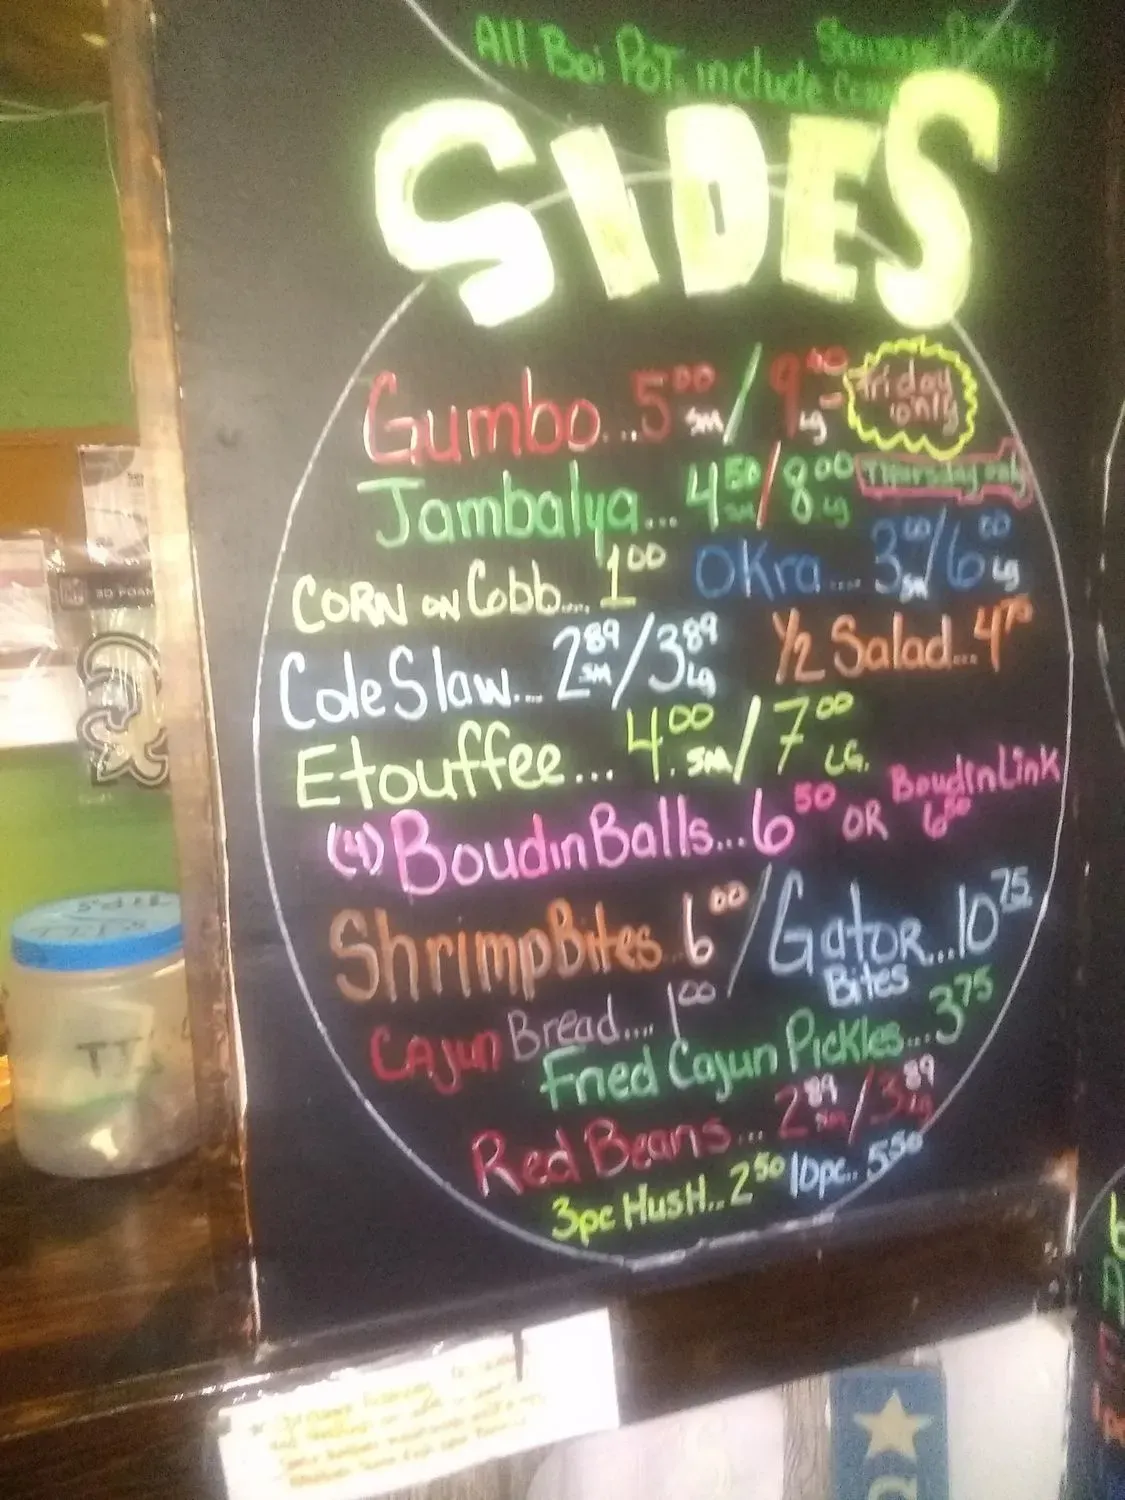 All Boi POT. include Sausage Potatoy Corn
SIDES
Gumbo...5⁰⁰ sm / 9⁴⁰ Lg friday only
Jambalya... 4⁵⁰ sm / 8⁰⁰ Lg Thursday only
CORN ON Cobb.... 1⁰⁰ OKra.... 3⁰⁰ sm / 6⁰⁰ Lg
Cole Slaw... 2⁸⁹ SM / 3⁸⁹ Lg ½ Salad...4⁷⁵
Etouffee... 4.⁰⁰ SM / 7⁰⁰ LG.
(4) Boudin Balls...6⁵⁰ OR Boudin Link 6⁵⁰
Shrimp Bites..6⁰⁰ / GatoR Bites...10⁷⁵
CAjun Bread.... 1⁰⁰
Fried Cajun Pickles...3⁷⁵
Red Beans... 2⁸⁹ sm / 3⁸⁹ Lg
3pc HusH...2⁵⁰ 10pc.. 5⁵⁰
TIPS
3D FOAM